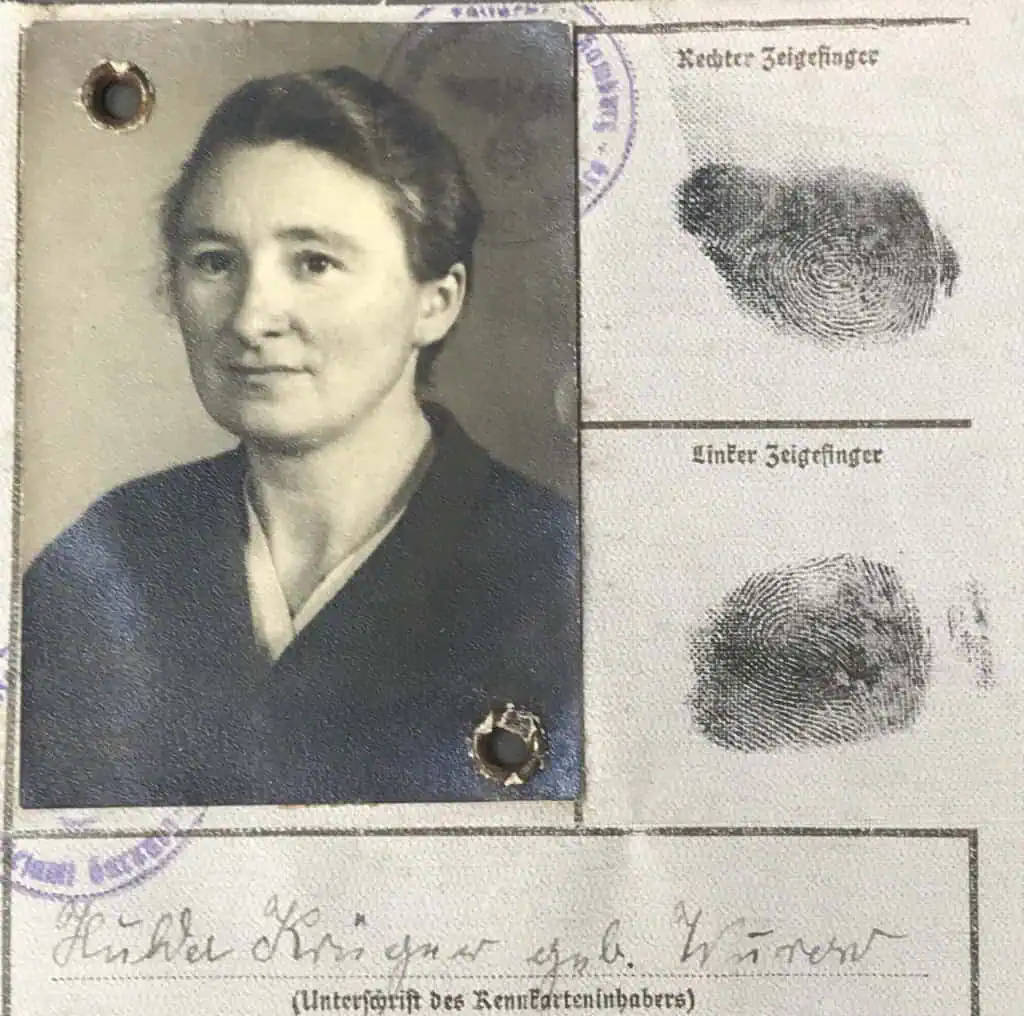 Rechter Zeigefinger
Linker Zeigefinger
Hulda Krüger geb.
(Unterschrift des Kennkarteninhabers)